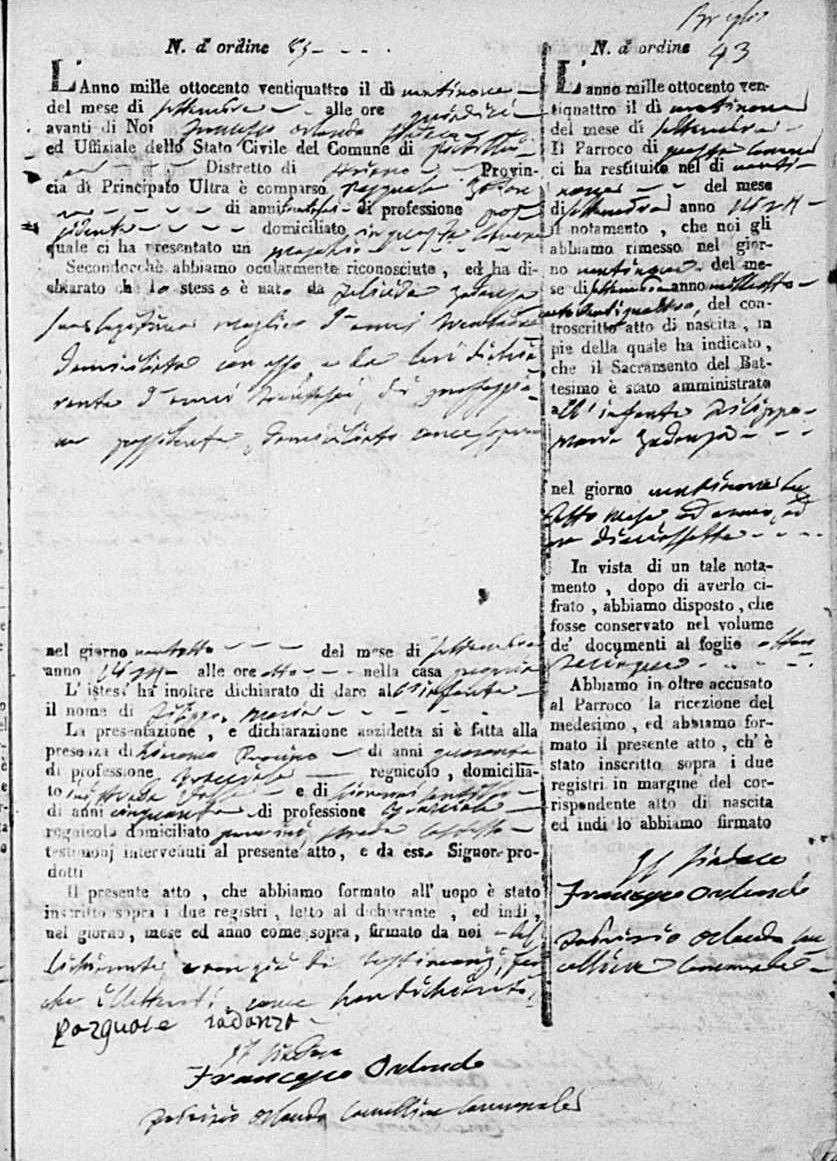 N. d'ordine 85
L'Anno mille ottocento ventiquattro il dì ventinove
del mese di settembre alle ore quindici
avanti di Noi Francesco Orlando Sindaco
ed Uffiziale dello Stato Civile del Comune di
Distretto di Ariano Provin-
cia di Principato Ultra è comparso Pasquale Zadan
di anni trentasei di professione pos-
sidente domiciliato in questo Comune
quale ci ha presentato un maschio
Secondocchè abbiamo ocularmente riconosciuto, ed ha di-
chiarato che lo stesso è nato da Felicida
sua legittima moglie d'anni
domiciliata con esso, e da lui dichia
rante d'anni trentasei, di professio-
ne possidente, domiciliato come sopra
nel giorno ventotto del mese di settembre
anno 1824 alle ore otto nella casa propria
L'istesso ha inoltre dichiarato di dare all'infante
il nome di Filippo Maria
La presentazione, e dichiarazione anzidetta si è fatta alla
presenza di Procopio di anni quaranta
di professione bracciale regnicolo, domicilia-
to Strada e di Giovanni
di anni cinquanta di professione bracciale
regnicolo domiciliato strada
testimonj intervenuti al presente atto, e da esso Signor pro-
dotti
Il presente atto, che abbiamo formato all'uopo è stato
inscritto sopra i due registri, letto al dichiarante, ed indi,
nel giorno, mese ed anno come sopra, firmato da noi dal
dichiarante di testimonj,
che illetterati come han dichiarato.
Pasquale Iadanza
Il Sindaco
Francesco Orlando
Fabrizio Orlando Cancelliere Comunale
N. d'ordine 93
L'anno mille ottocento ven-
tiquattro il dì ventinove
del mese di settembre
Il Parroco di questo Comune
ci ha restituito nel dì venti-
nove del mese
di settembre anno 1824
il notamento, che noi gli
abbiamo rimesso nel gior-
no ventinove del me-
se di settembre anno milleotto-
cento ventiquattro, del con-
troscritto atto di nascita, in
pie della quale ha indicato,
che il Sacramento del Bat-
tesimo è stato amministrato
all'infante Filippo
Maria Iadanza
nel giorno ventinove
detto mese ed anno, ad
ore diciassette
In vista di un tale nota-
mento, dopo di averlo ci-
frato, abbiamo disposto, che
fosse conservato nel volume
de' documenti al foglio ottan
tacinque
Abbiamo in oltre accusato
al Parroco la ricezione del
medesimo, ed abbiamo for-
mato il presente atto, ch'è
stato inscritto sopra i due
registri in margine del cor-
rispondente atto di nascita
ed indi lo abbiamo firmato
Il Sindaco
Francesco Orlando
Fabrizio Orlando Can
celliere Comunale